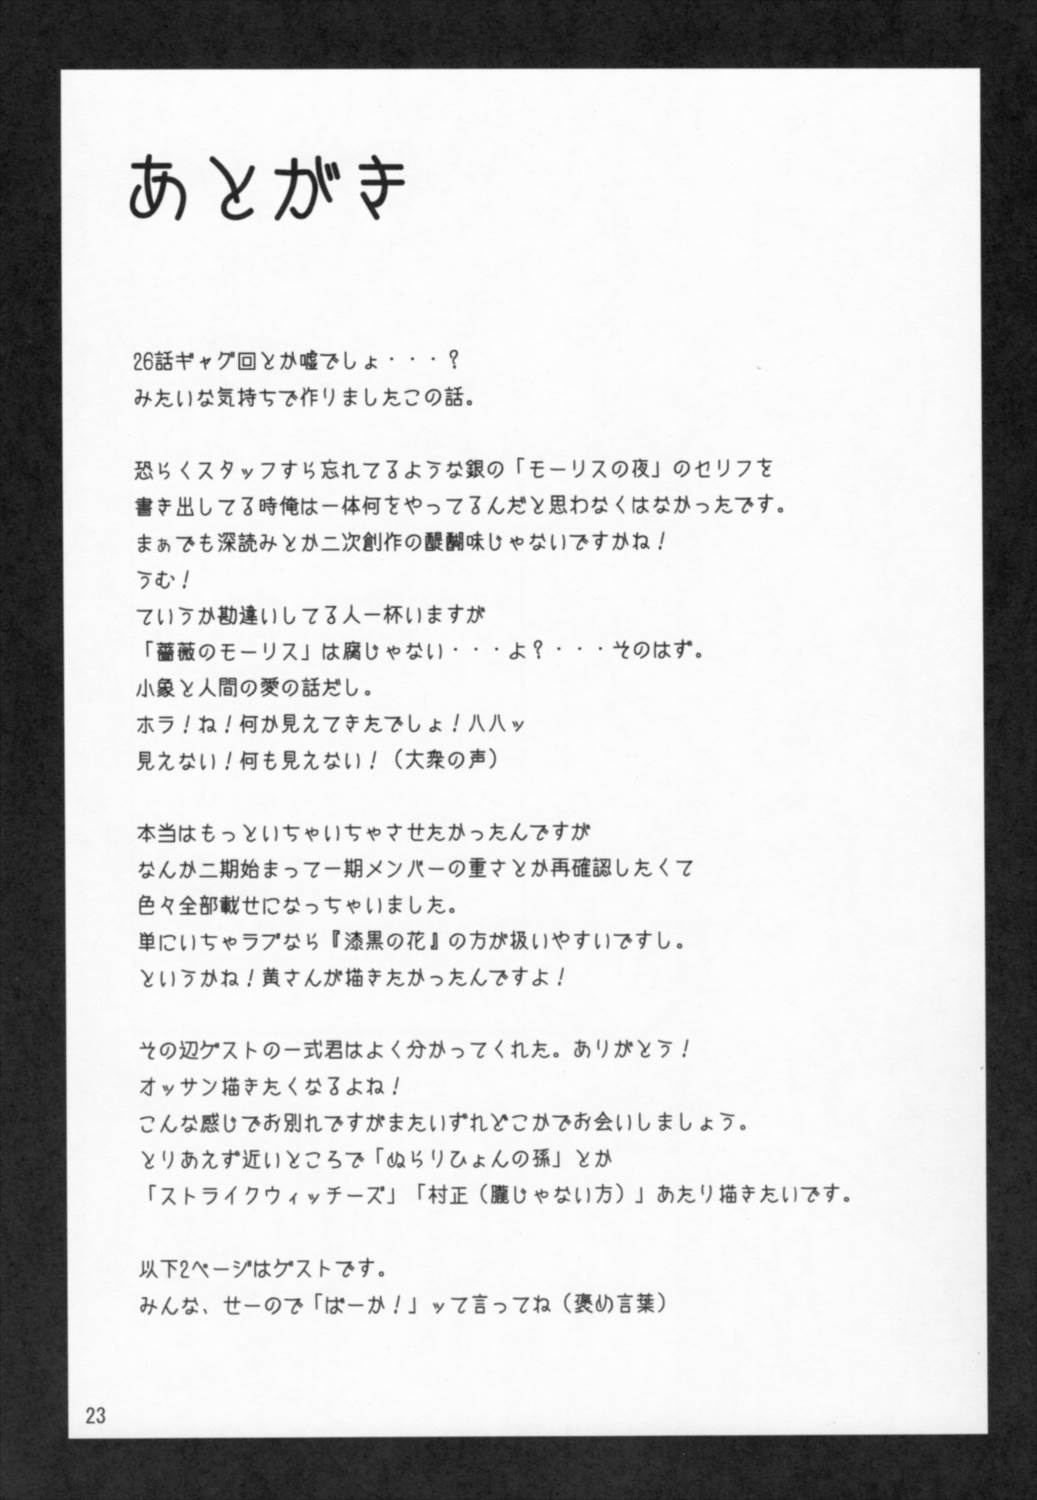 あとがき
26話ギャグ回とか嘘でしょ・・・？
みたいな気持ちで作りましたこの話。
恐らくスタッフすら忘れてるような銀の「モーリスの夜」のセリフを
書き出してる時俺は一体何をやってるんだと思わなくはなかったです。
まぁでも深読みとか二次創作の醍醐味じゃないですかね！
うむ！
ていうか勘違いしてる人一杯いますが
「薔薇のモーリス」は腐じゃない・・・よ？・・・そのはず。
小象と人間の愛の話だし。
ホラ！ね！何か見えてきたでしょ！ハハッ
見えない！何も見えない！（大衆の声）
本当はもっといちゃいちゃさせたかったんですが
なんか二期始まって一期メンバーの重さとか再確認したくて
色々全部載せになっちゃいました。
単にいちゃラブなら『漆黒の花』の方が扱いやすいですし。
というかね！黄さんが描きたかったんですよ！
その辺ゲストの一式君はよく分かってくれた。ありがとう！
オッサン描きたくなるよね！
こんな感じでお別れですがまたいずれどこかでお会いしましょう。
とりあえず近いところで「ぬらりひょんの孫」とか
「ストライクウィッチーズ」「村正（朧じゃない方）」あたり描きたいです。
以下2ページはゲストです。
みんな、せーので「ばーか！」ッて言ってね（褒め言葉）
23